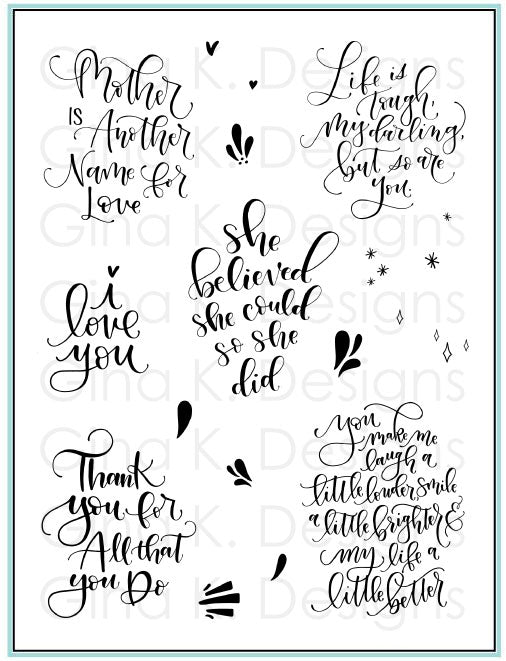 Mother
IS Another
Name for
Love
Life is
tough,
my darling,
but so are
you.
she
believed
she could
so she
did.
i
love
you
Thank
you for
All that
you Do
You
make me
laugh a
little louder smile
a little brighter &
my life a
little better
Gina K. Designs
Gina K. Designs
Gina K. Designs
Gina K. Designs
Gina K. Designs
Gina K. Designs
Gina K. Designs
Gina K. Designs